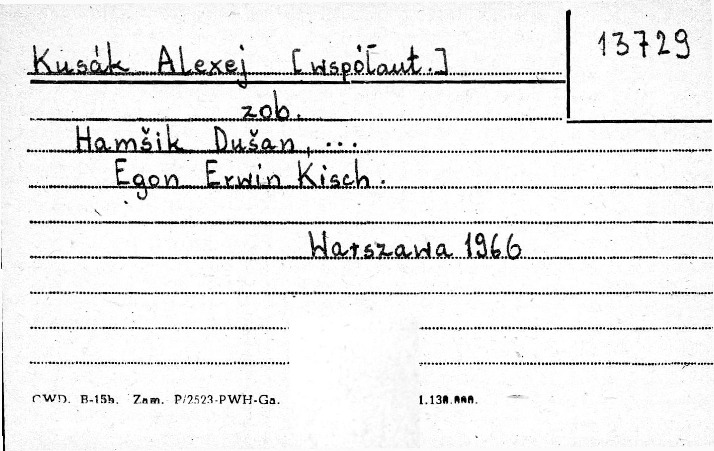 Kusák Alexej [współaut.]
13729
zob.
Hamšik Dušan, ...
Egon Erwin Kisch.
Warszawa 1966
CWD. B-15b. Zam. P/2523-PWH-Ga. 1.130.000.